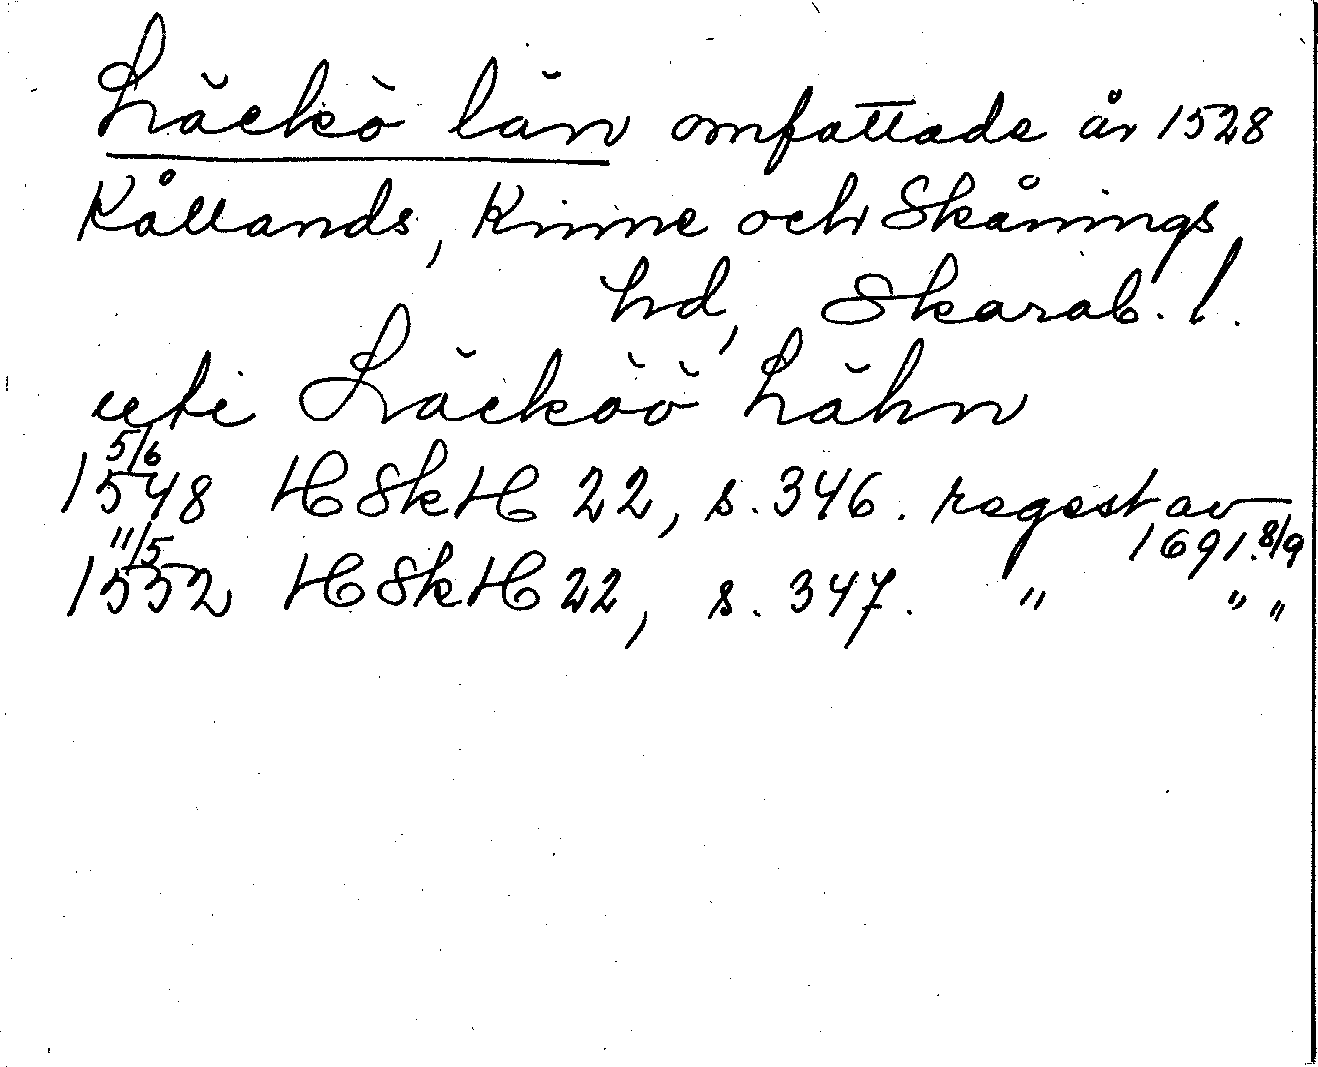 Läckö län omfattade år 1528
Kållands, Kinne och Skånings
hd, Skarab. l.
uti Läcköö Lähn
5/6
1548 HSkH 22, s. 346. regest av
1691. 8/9
11/5
1552 HSkH 22, s. 347. " " "